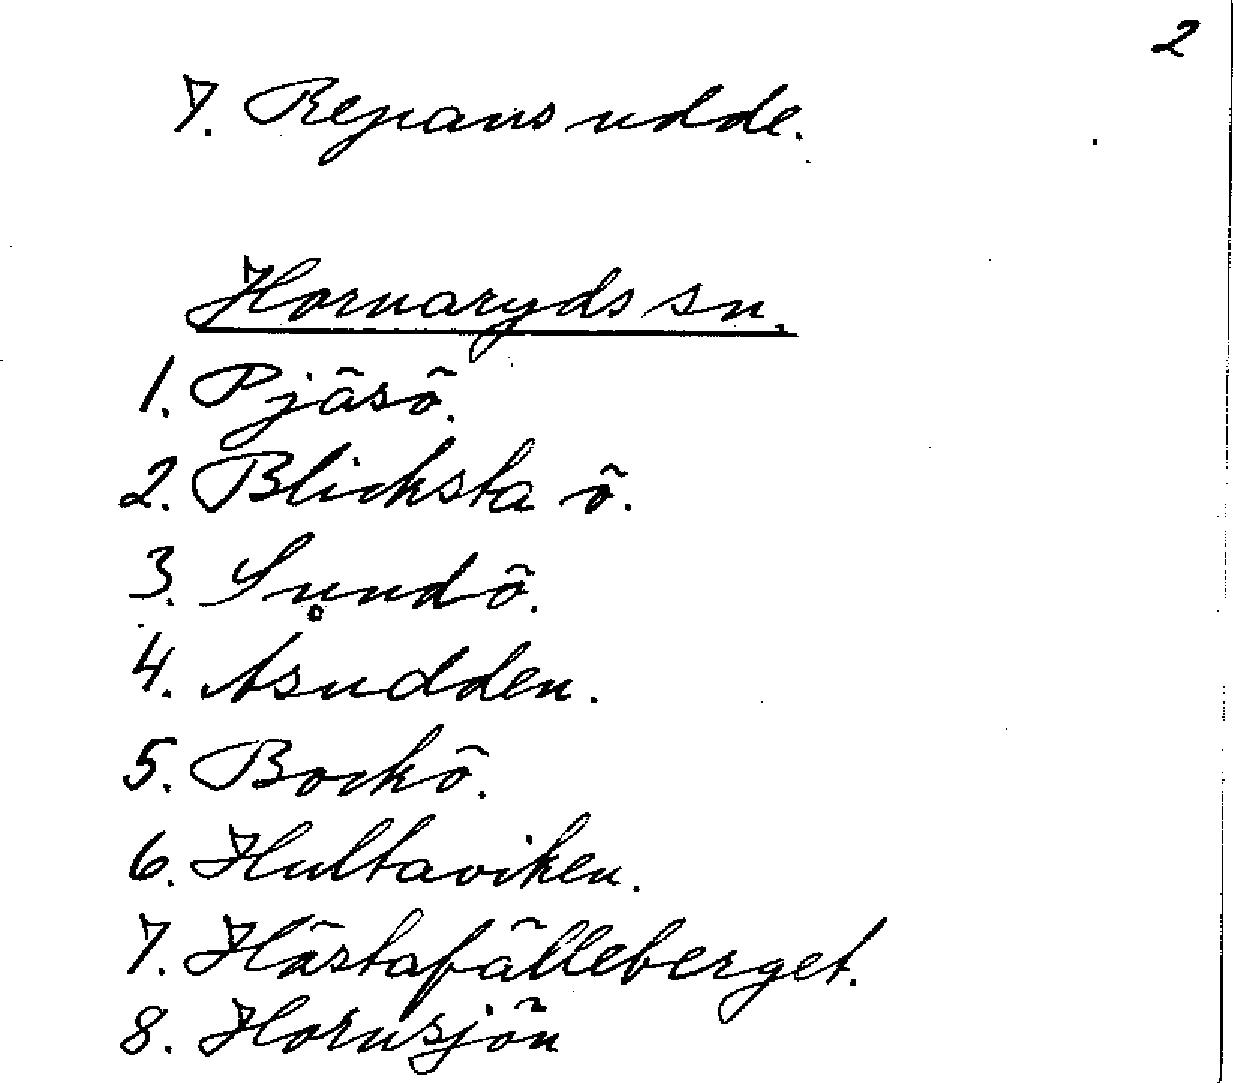 2
7. Repans udde.
Hornaryds sn.
1. Pjäsö.
2. Blicksta ö.
3. Sundö.
4. Åsudden.
5. Bockö.
6. Hultaviken.
7. Hästafälleberget.
8. Hornsjön